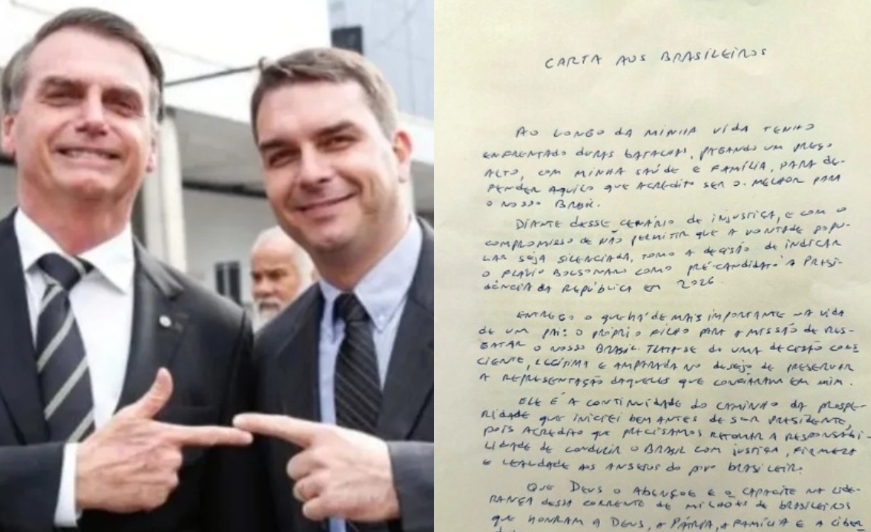 CARTA AOS BRASILEIROS
AO LONGO DA MINHA VIDA TENHO
ENFRENTADO DURAS BATALHAS, PAGANDO UM PREÇO
ALTO, COM MINHA SAÚDE E FAMÍLIA, PARA DE-
FENDER AQUILO QUE ACREDITO SER O MELHOR PARA
O NOSSO BRASIL.
DIANTE DESSE CENÁRIO DE INJUSTIÇA, E COM O
COMPROMISSO DE NÃO PERMITIR QUE A VONTADE POPU-
LAR SEJA SILENCIADA, TOMO A DECISÃO DE INDICAR
O FLÁVIO BOLSONARO COMO PRÉ-CANDIDATO À PRESI-
DÊNCIA DA REPÚBLICA EM 2026.
ENTREGO O QUE HÁ DE MAIS IMPORTANTE NA VIDA
DE UM PAI: O PRÓPRIO FILHO PARA A MISSÃO DE RES-
GATAR O NOSSO BRASIL. TRATA-SE DE UMA DECISÃO CONS
CIENTE, LEGÍTIMA E AMPARADA NO DESEJO DE PRESERVAR
A REPRESENTAÇÃO DAQUELES QUE CONFIARAM EM MIM.
ELE É A CONTINUIDADE DO CAMINHO DA PROSPE-
RIDADE QUE INICIEI BEM ANTES DE SER PRESIDENTE,
POIS ACREDITO QUE PRECISAMOS RETOMAR A RESPONSABI-
LIDADE DE CONDUZIR O BRASIL COM JUSTIÇA, FIRMEZA
E LEALDADE AOS ANSEIOS DO POVO BRASILEIRO.
QUE DEUS O ABENÇOE E O CAPACITE NA LIDE-
RANÇA DESSA CORRENTE DE MILHÕES DE BRASILEIROS
QUE HONRAM A DEUS, A PÁTRIA, A FAMÍLIA E A LIBER